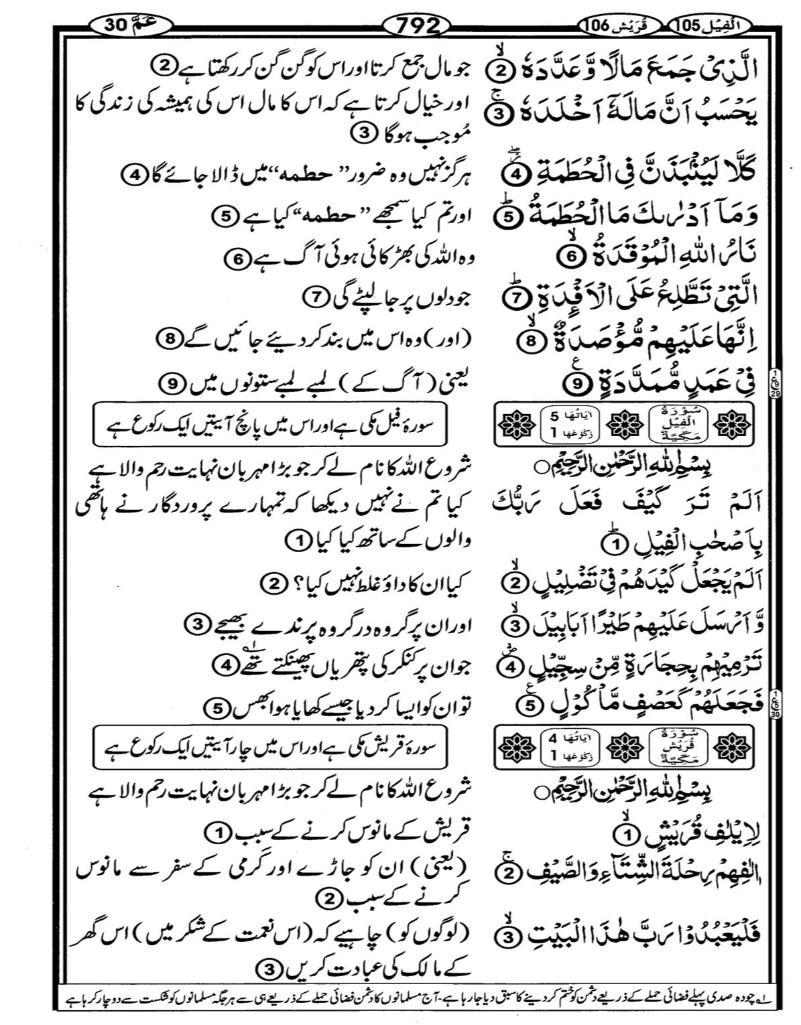 الْفِيْل 105 قُرَيْش 106 792 عَمَّ 30
الَّذِىْ جَمَعَ مَالًا وَّعَدَّدَهٗ ② جو مال جمع کرتا اور اس کو گن گن کر رکھتا ہے ②
يَحْسَبُ اَنَّ مَالَهٗٓ اَخْلَدَهٗ ③ اور خیال کرتا ہے کہ اس کا مال اس کی ہمیشہ کی زندگی کا
مُوجب ہوگا ③
كَلَّا لَيُنْۢبَذَنَّ فِى الْحُطَمَةِ ④ ہرگز نہیں وہ ضرور ”حطمه“ میں ڈالا جائے گا ④
وَمَاۤ اَدْرٰىكَ مَا الْحُطَمَةُ ⑤ اور تم کیا سمجھے ”حطمه“ کیا ہے ⑤
نَارُ اللّٰهِ الْمُوْقَدَةُ ⑥ وہ اللہ کی بھڑکائی ہوئی آگ ہے ⑥
الَّتِىْ تَطَّلِعُ عَلَى الْاَفْـِٕدَةِ ⑦ جو دلوں پر جا لپٹے گی ⑦
اِنَّهَا عَلَيْهِمْ مُّؤْصَدَةٌ ⑧ (اور) وہ اس میں بند کر دیئے جائیں گے ⑧
فِىْ عَمَدٍ مُّمَدَّدَةٍ ⑨ یعنی (آگ کے) لمبے لمبے ستونوں میں ⑨
سُوْرَةُ الْفِيْلِ مَكِّيَّةٌ اٰيَاتُهَا 5 رُكُوْعُهَا 1 سورۂ فیل مکی ہے اور اس میں پانچ آیتیں ایک رکوع ہے
بِسْمِ اللّٰهِ الرَّحْمٰنِ الرَّحِيْمِ ○ شروع اللہ کا نام لے کر جو بڑا مہربان نہایت رحم والا ہے
اَلَمْ تَرَ كَيْفَ فَعَلَ رَبُّكَ کیا تم نے نہیں دیکھا کہ تمہارے پروردگار نے ہاتھی
بِاَصْحٰبِ الْفِيْلِ ① والوں کے ساتھ کیا کیا ①
اَلَمْ يَجْعَلْ كَيْدَهُمْ فِىْ تَضْلِيْلٍ ② کیا ان کا داؤ غلط نہیں کیا؟ ②
وَّاَرْسَلَ عَلَيْهِمْ طَيْرًا اَبَابِيْلَ ③ اور ان پر گروہ در گروہ پرندے بھیجے ③
تَرْمِيْهِمْ بِحِجَارَةٍ مِّنْ سِجِّيْلٍ ④ جو ان پر کنکر کی پتھریاں پھینکتے تھے ④
فَجَعَلَهُمْ كَعَصْفٍ مَّاْكُوْلٍ ⑤ تو ان کو ایسا کر دیا جیسے کھایا ہوا بھس ⑤
سُوْرَةُ قُرَيْشٍ مَكِّيَّةٌ اٰيَاتُهَا 4 رُكُوْعُهَا 1 سورۂ قریش مکی ہے اور اس میں چار آیتیں ایک رکوع ہے
بِسْمِ اللّٰهِ الرَّحْمٰنِ الرَّحِيْمِ ○ شروع اللہ کا نام لے کر جو بڑا مہربان نہایت رحم والا ہے
لِاِيْلٰفِ قُرَيْشٍ ① قریش کے مانوس کرنے کے سبب ①
اٖلٰفِهِمْ رِحْلَةَ الشِّتَآءِ وَالصَّيْفِ ② (یعنی) ان کو جاڑے اور گرمی کے سفر سے مانوس
کرنے کے سبب ②
فَلْيَعْبُدُوْا رَبَّ هٰذَا الْبَيْتِ ③ (لوگوں کو) چاہیے کہ (اس نعمت کے شکر میں) اس گھر
کے مالک کی عبادت کریں ③
۱ چودہ صدی پہلے فضائی حملے کے ذریعے دشمن کو ختم کر دینے کا سبق دیا جا رہا ہے۔ آج مسلمانوں کا دشمن فضائی حملے کے ذریعے ہی سے ہر جگہ مسلمانوں کو شکست سے دوچار کر رہا ہے